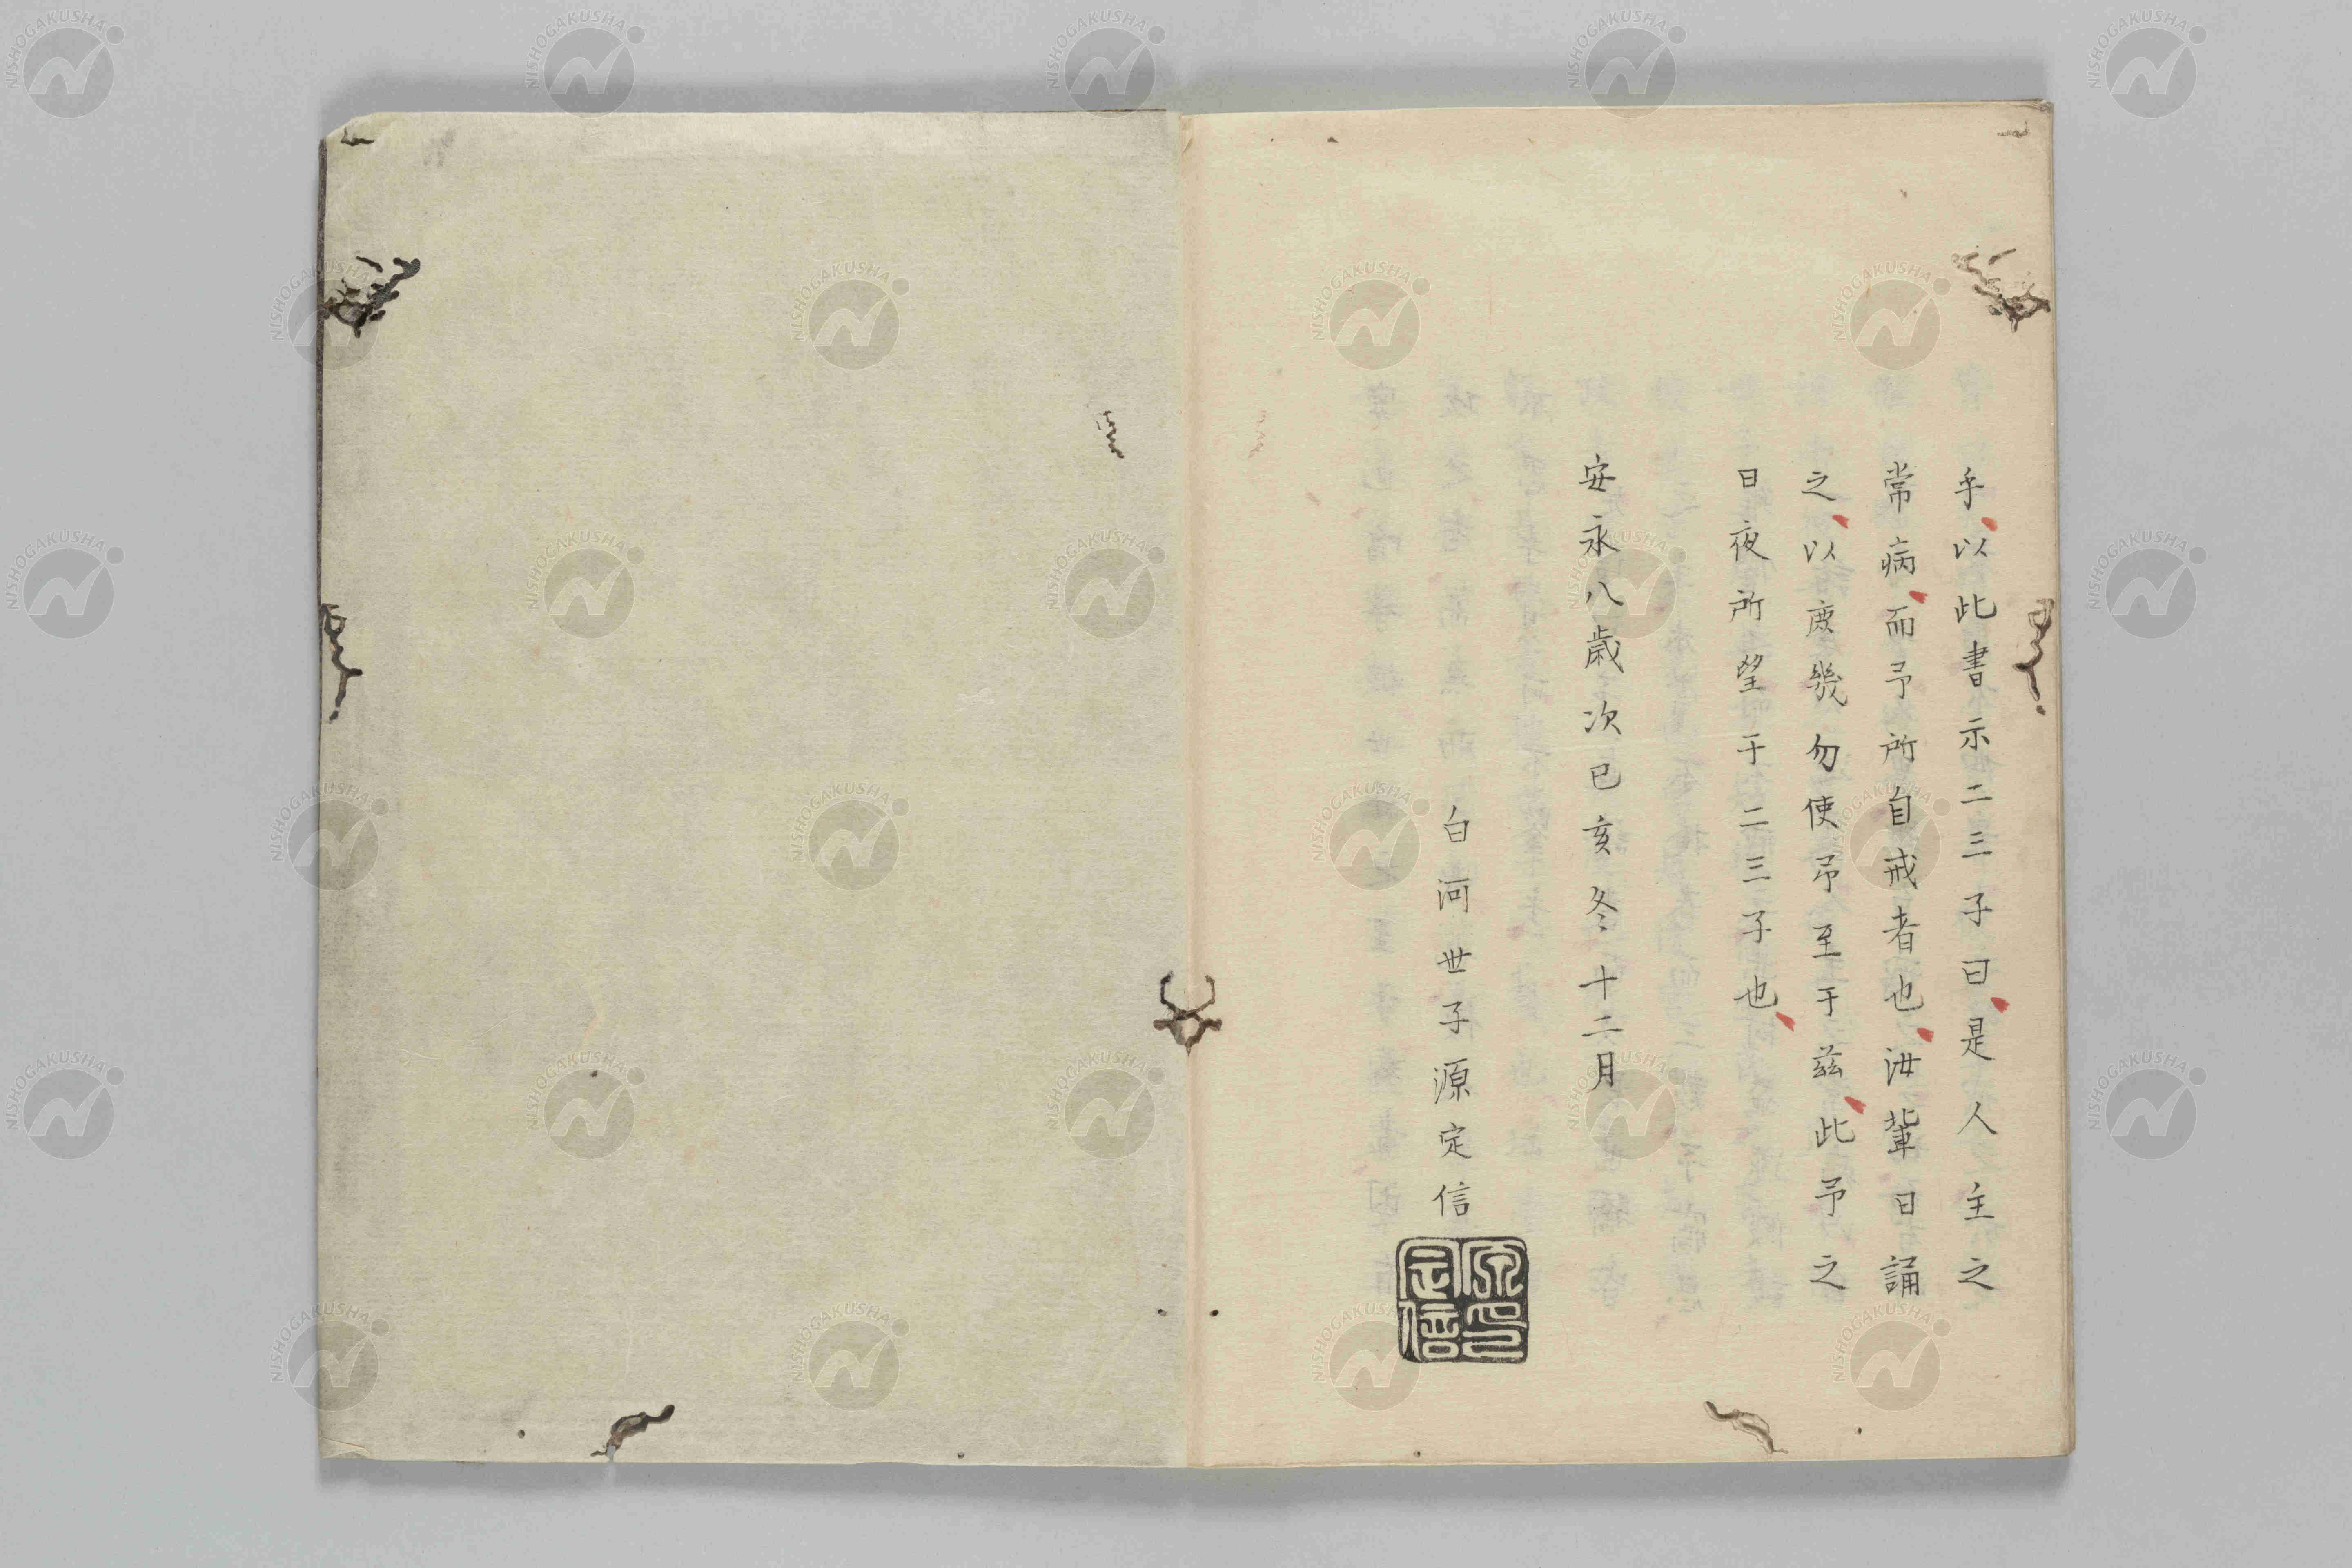 乎以此書示二三子曰是人主之
常病而予所自戒者也汝輩日誦
之以庶幾勿使予至于茲此予之
日夜所望于二三子也
安永八歳次己亥冬十二月
白河世子源定信
源印定信
NISHOGAKUSHA